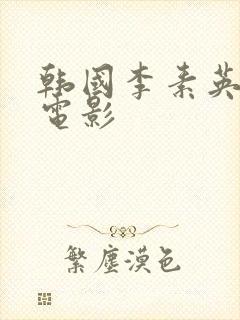 韩國李素英
電影
繁塵漠色